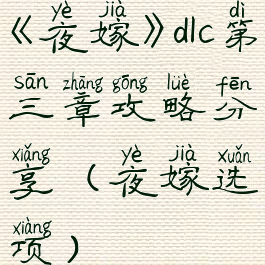 yè jià dì
《夜嫁》dlc第
sān zhāng gōng lüè fēn
三章攻略分
xiǎng yè jià xuǎn
享（夜嫁选
xiàng
项）